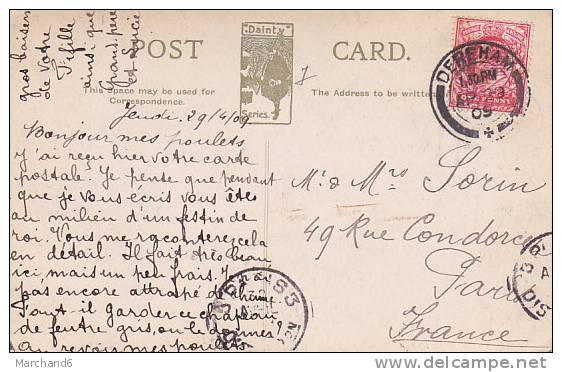 gros baisers
de votre
fifille
ainsi que
Grand père
et
"Dainty"
Series.
POST CARD.
This space may be used for
Correspondence.
The Address to be written
DEREHAM
PM
09
PENNY
Jeudi. 29/4/09
Bonjour mes poulets
J'ai reçu hier votre carte
postale. Je pense que pendant
que je vous écris vous êtes
au milieu d'un festin de
roi. Vous me raconterez cela
en détail. Il fait très beau
ici mais un peu frais. Je n'ai
pas encore attrapé de rhume.
Faut-il garder ce chapeau
de feutre gris, ou le donner?
au revoir mes poulets
Mr & Mrs Sorin
49 Rue Condorcet
Paris
France
PARIS 83
DIS
Marchand6
delcampe.net